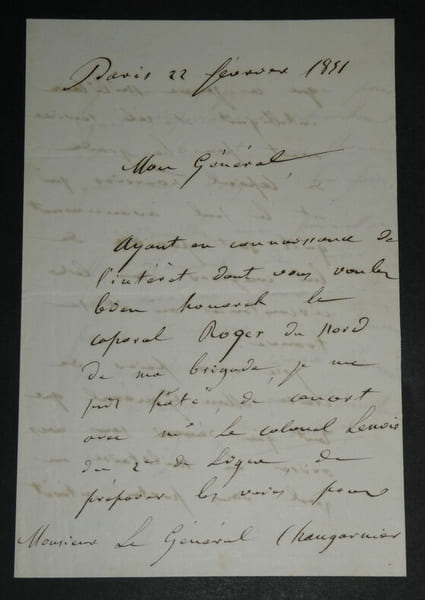 Paris 22 février 1851
Mon Général
Ayant eu connaissance de
l'intérêt dont vous voulez
bien honorer le
caporal Roger du Nord
de ma brigade, je me
suis hâté, de concert
avec mr le colonel Lenois
du 2e de Ligne de
préparer les voies pour
Monsieur Le Général Changarnier